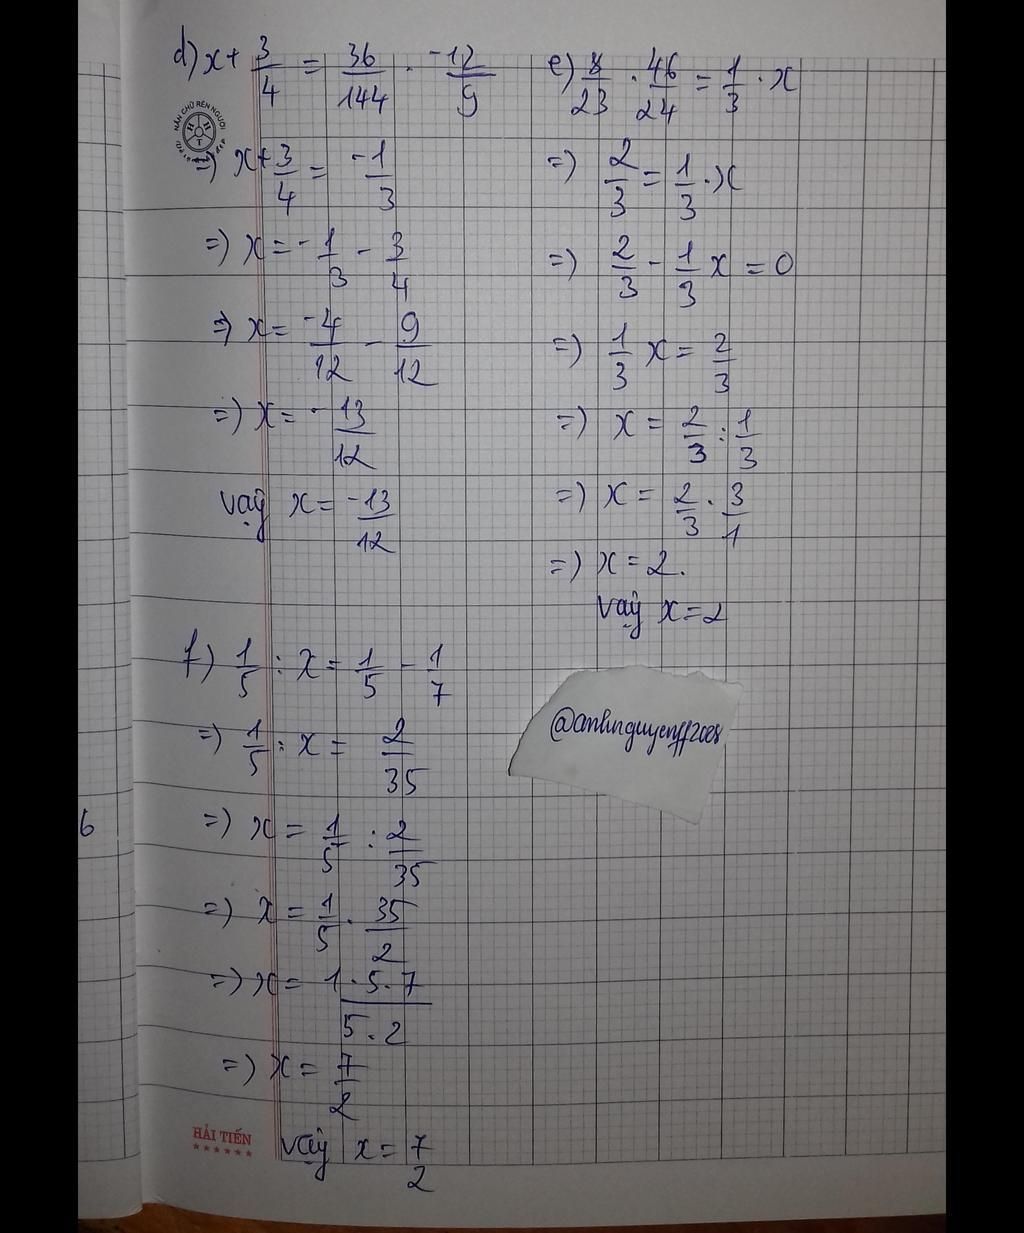 d) x + 3/4 = 36/144 . -12/9
NẮN CHỮ RÈN NGƯỜI
H H T
=) x + 3/4 = -1/3
=) x = -1/3 - 3/4
=) x = -4/12 - 9/12
=) x = -13/12
vậy x = -13/12
e) 8/23 . 46/24 = 1/3 . x
=) 2/3 = 1/3 . x
=) 2/3 - 1/3 x = 0
=) 1/3 x = 2/3
=) x = 2/3 : 1/3
=) x = 2/3 . 3/1
=) x = 2.
vậy x = 2
f) 1/5 : x = 1/5 - 1/7
=) 1/5 : x = 2/35
=) x = 1/5 : 2/35
=) x = 1/5 . 35/2
=) x = 1.5.7/5.2
=) x = 7/2
vậy x = 7/2
@anhnguyenff2008
6
HẢI TIẾN